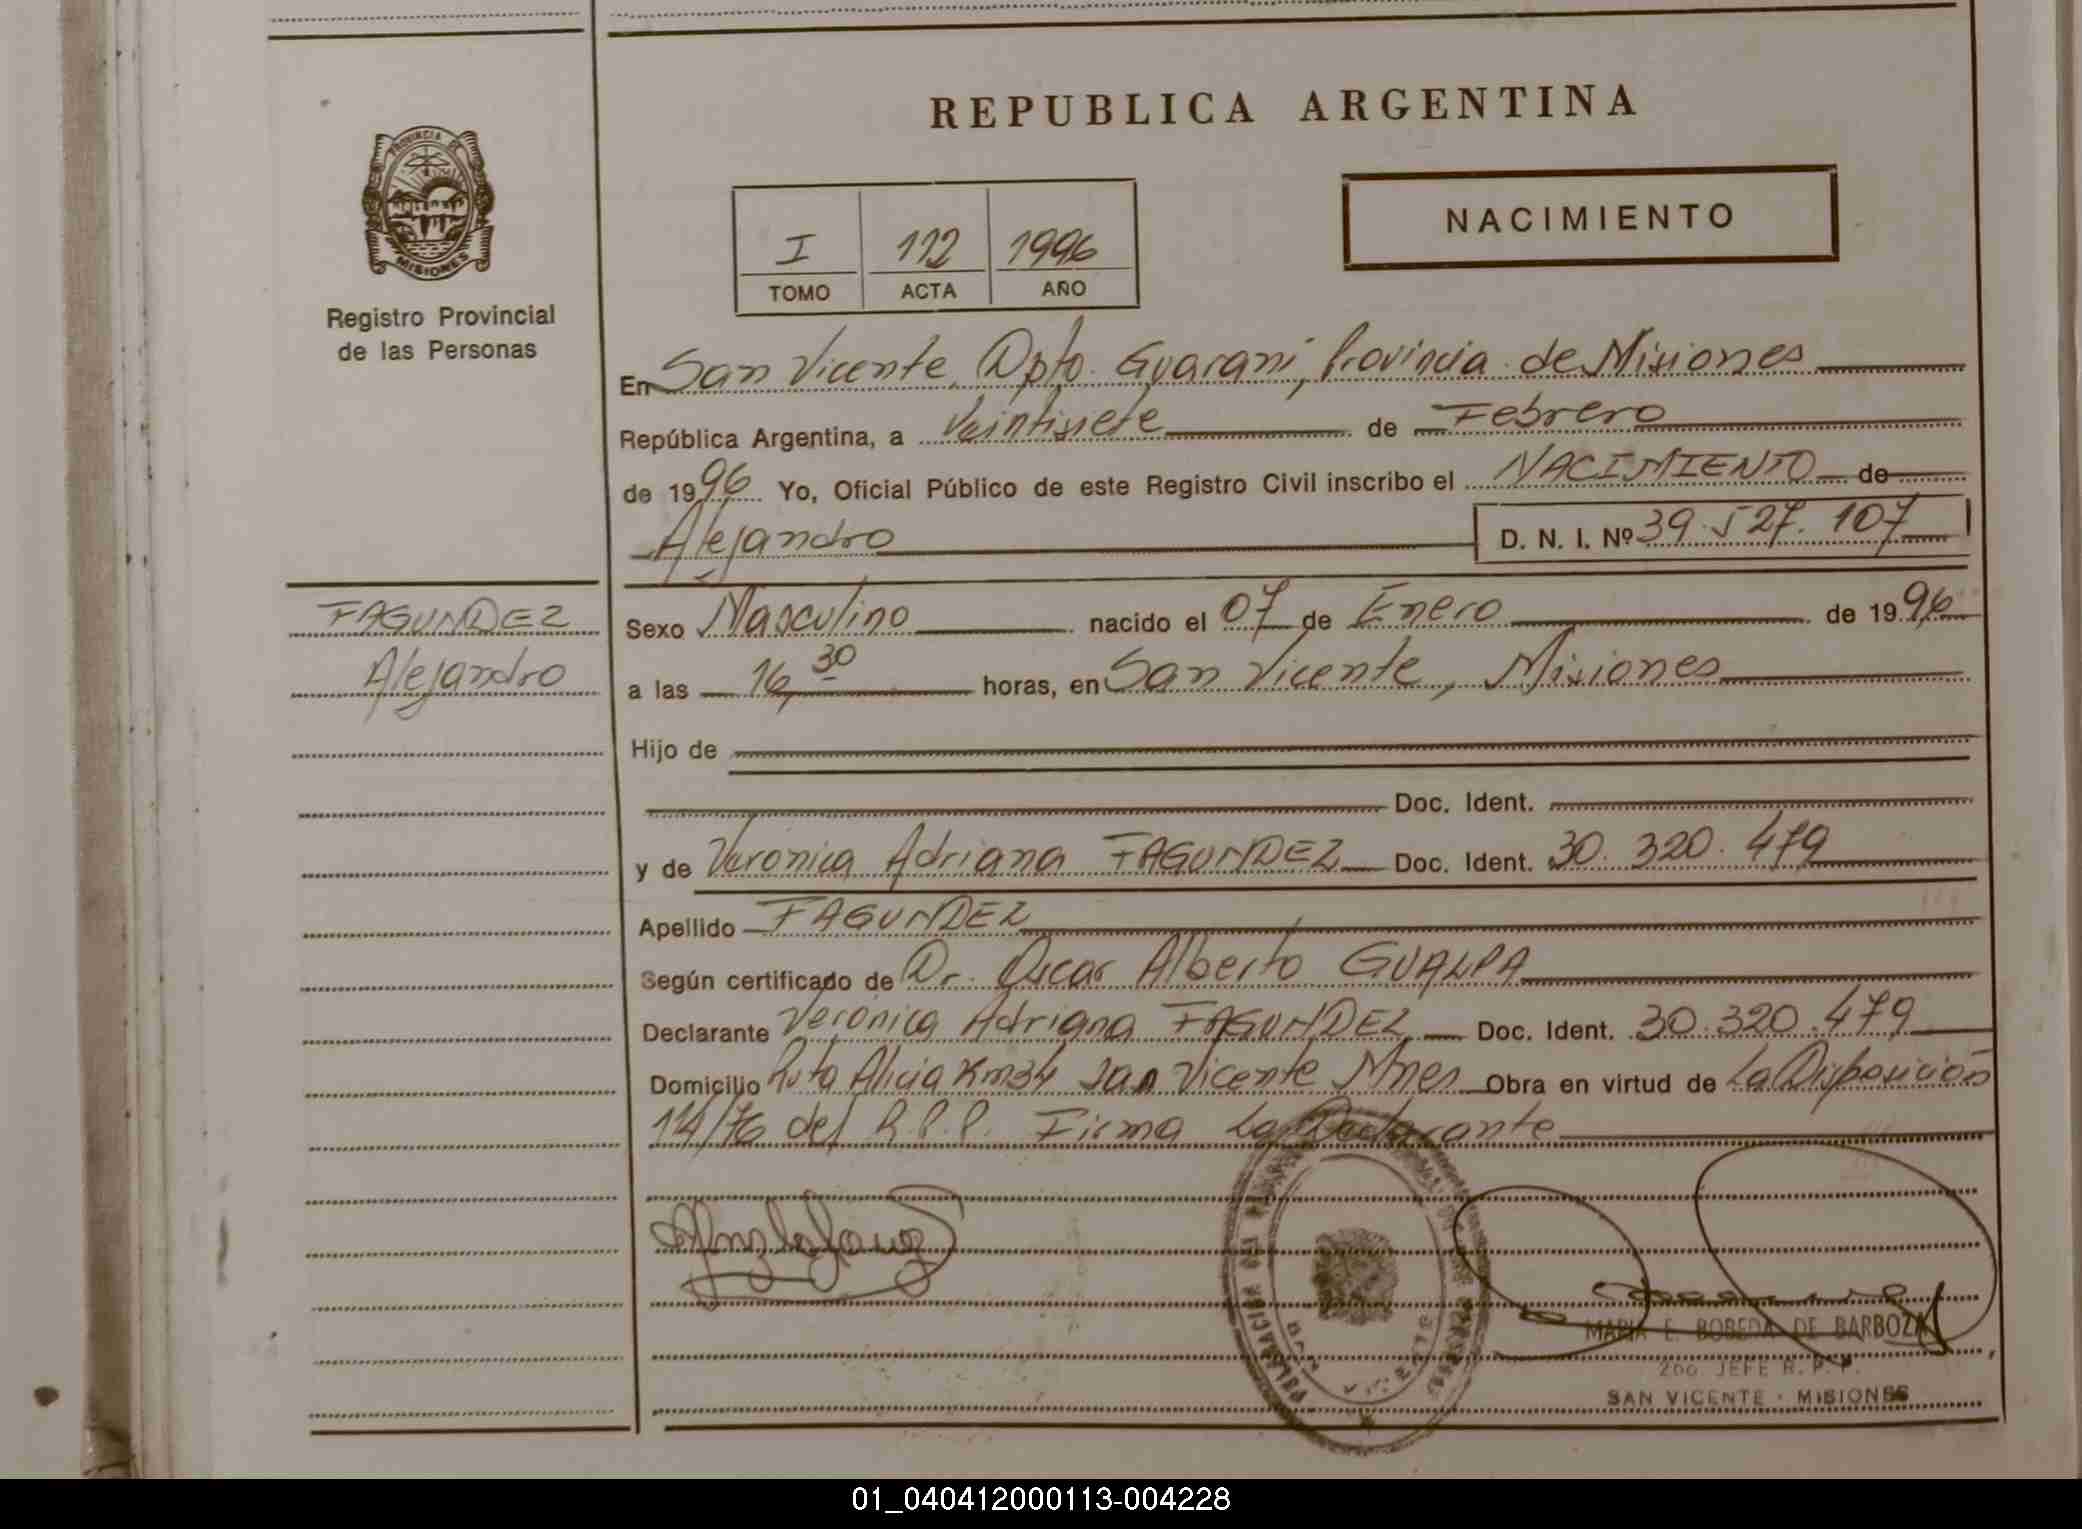 REPUBLICA ARGENTINA
PROVINCIA DE
MISIONES
Registro Provincial
de las Personas
I 112 1996
TOMO ACTA AÑO
NACIMIENTO
En San Vicente, Dpto. Guaraní, Provincia de Misiones
República Argentina, a Veintisiete de Febrero
de 1996 Yo, Oficial Público de este Registro Civil inscribo el NACIMIENTO de
Alejandro D. N. I. Nº 39.527.107
FAGUNDEZ
Alejandro
Sexo Masculino nacido el 07 de Enero de 1996
a las 16,30 horas, en San Vicente, Misiones
Hijo de
Doc. Ident.
y de Verónica Adriana FAGUNDEZ Doc. Ident. 30.320.479
Apellido FAGUNDEZ
Según certificado de Dr. Oscar Alberto GUALPA
Declarante Verónica Adriana FAGUNDEZ Doc. Ident. 30.320.479
Domicilio Ruta Alicia Km34 San Vicente Mnes Obra en virtud de La Disposición
14/76 del R.P.P. Firma La Declarante
MARIA E. BOBEDA DE BARBOZA
2do JEFE R.P.P.
SAN VICENTE - MISIONES
01_040412000113-004228